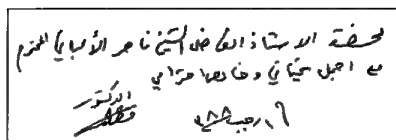 لحضرة الاستاذ الفاضل الشيخ ناصر الألباني المحترم
مع اجمل تحياتي وخالص احترامي
الدكتور
رجب